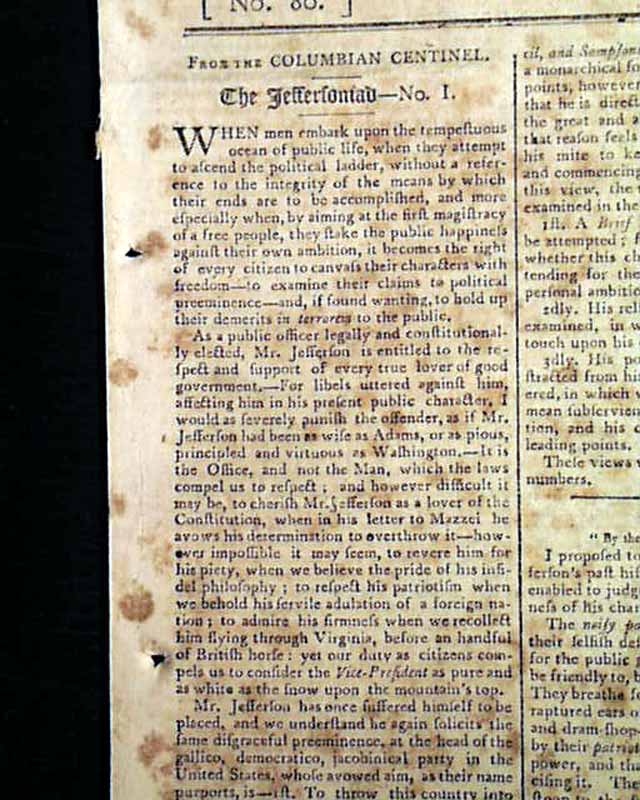 [ No. 80. ]
FROM THE COLUMBIAN CENTINEL.
The Jeffersoniad—No. I.
WHEN men embark upon the tempeſtuous
ocean of public life, when they attempt
to aſcend the political ladder, without a refer-
ence to the integrity of the means by which
their ends are to be accompliſhed, and more
eſpecially when, by aiming at the firſt magiſtracy
of a free people, they ſtake the public happineſs
againſt their own ambition, it becomes the right
of every citizen to canvaſs their characters with
freedom—to examine their claims to political
preeminence—and, if found wanting, to hold up
their demerits in terrorem to the public.
As a public officer legally and conſtitutional-
ly elected, Mr. Jefferſon is entitled to the re-
ſpect and ſupport of every true lover of good
government.—For libels uttered againſt him,
affecting him in his preſent public character, I
would as ſeverely puniſh the offender, as if Mr.
Jefferſon had been as wiſe as Adams, or as pious,
principled and virtuous as Waſhington.—It is
the Office, and not the Man, which the laws
compel us to reſpect ; and however difficult it
may be, to cheriſh Mr. Jefferſon as a lover of the
Conſtitution, when in his letter to Mazzei he
avows his determination to overthrow it—how-
ever impoſſible it may ſeem, to revere him for
his piety, when we believe the pride of his infi-
del philoſophy ; to reſpect his patriotiſm when
we behold his ſervile adulation of a foreign na-
tion ; to admire his firmneſs when we recollect
him flying through Virginia, before an handful
of Britiſh horſe : yet our duty as citizens com-
pels us to conſider the Vice-Preſident as pure and
as white as the ſnow upon the mountain's top.
Mr. Jefferſon has once ſuffered himſelf to be
placed, and we underſtand he again ſolicits the
ſame diſgraceful preeminence, at the head of the
gallico, democratico, jacobinical party in the
United States, whoſe avowed aim, as their name
purports, is—1ſt. To throw this country into
cil, and Sampſon
a monarchical fo
points, however
that he is direct
the great and a
that reaſon feels
his mite to ke
and commencing
this view, the
examined in the
1ſt. A Brief
be attempted ; f
whether this ch
tending for the
perſonal ambitio
2dly. His reli
examined, in w
touch upon his
3dly. His po
ſtracted from his
ered, in which w
mean ſubſervien
tion, and his c
leading points.
Theſe views w
numbers.
" By the
I propoſed to
ferſon's paſt hiſ
enabled to judg
neſs of his char
The noiſy pa
their ſelfiſh deſ
for the public
be friendly to, b
They breathe ſe
raptured ears o
and dram-ſhop-
by their patriot
power, and tha
ciſing it. The